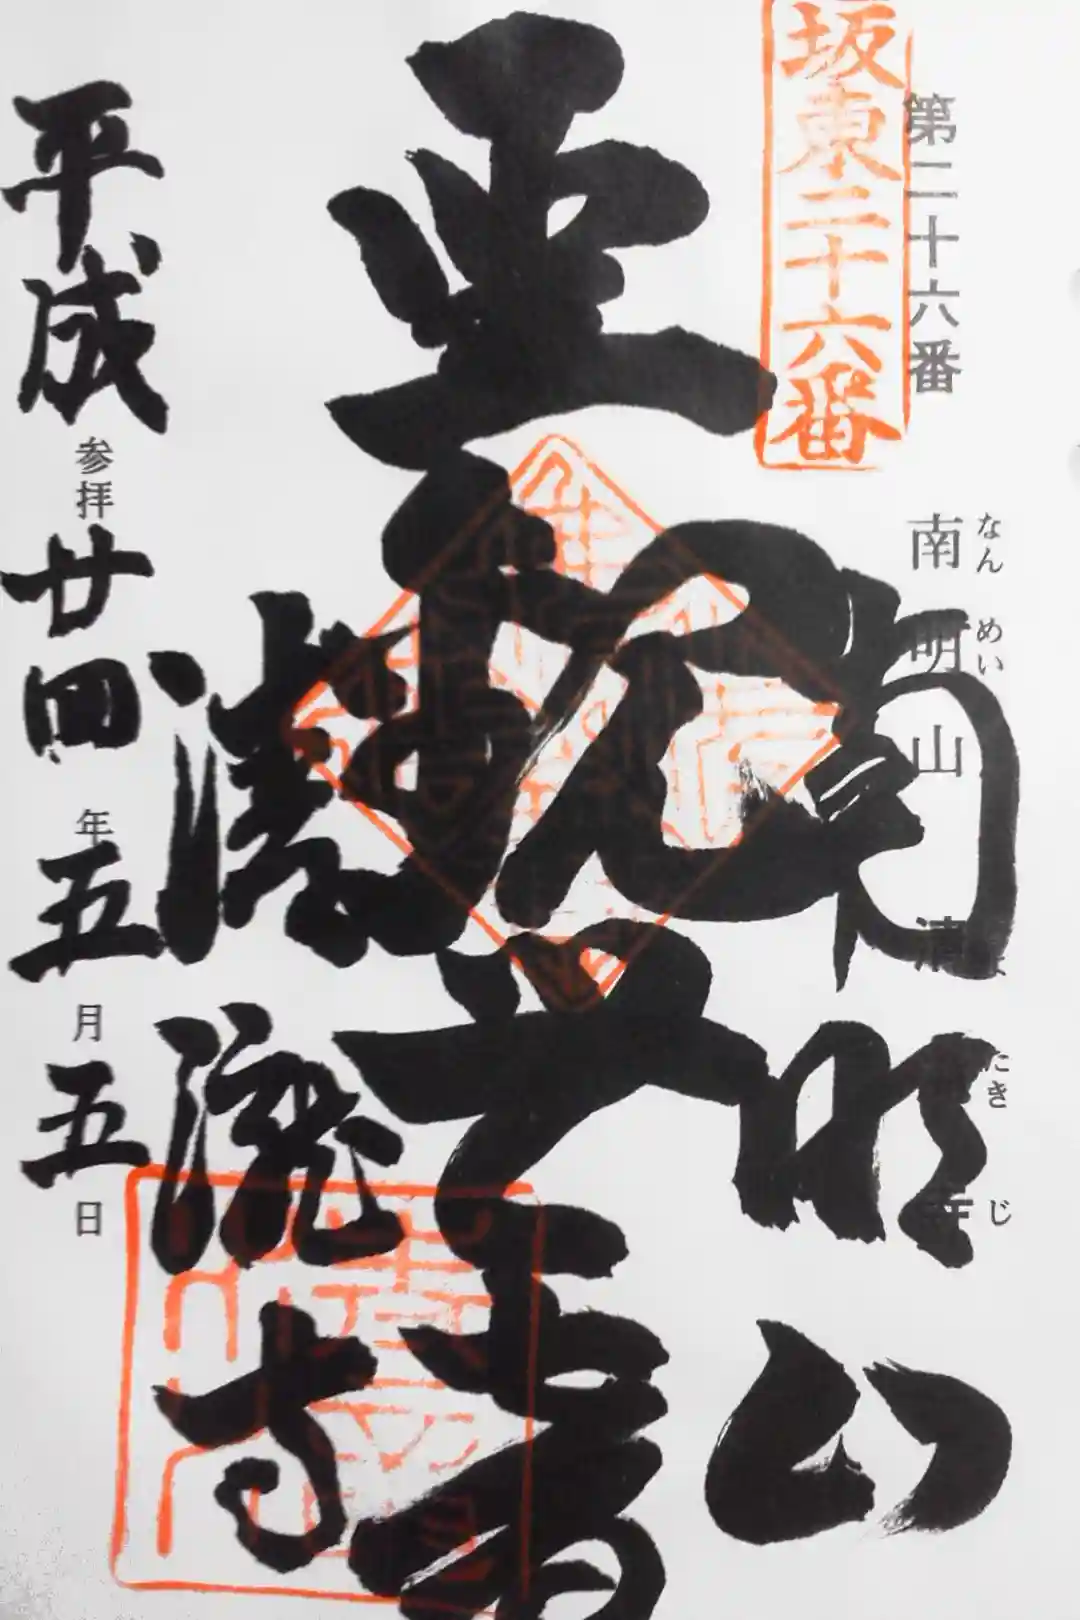 第二十六番
なんめい
南明山
清
きじ
坂東二十六番
南明山
聖観世音
清瀧寺
平成廿四年五月五日
参拝